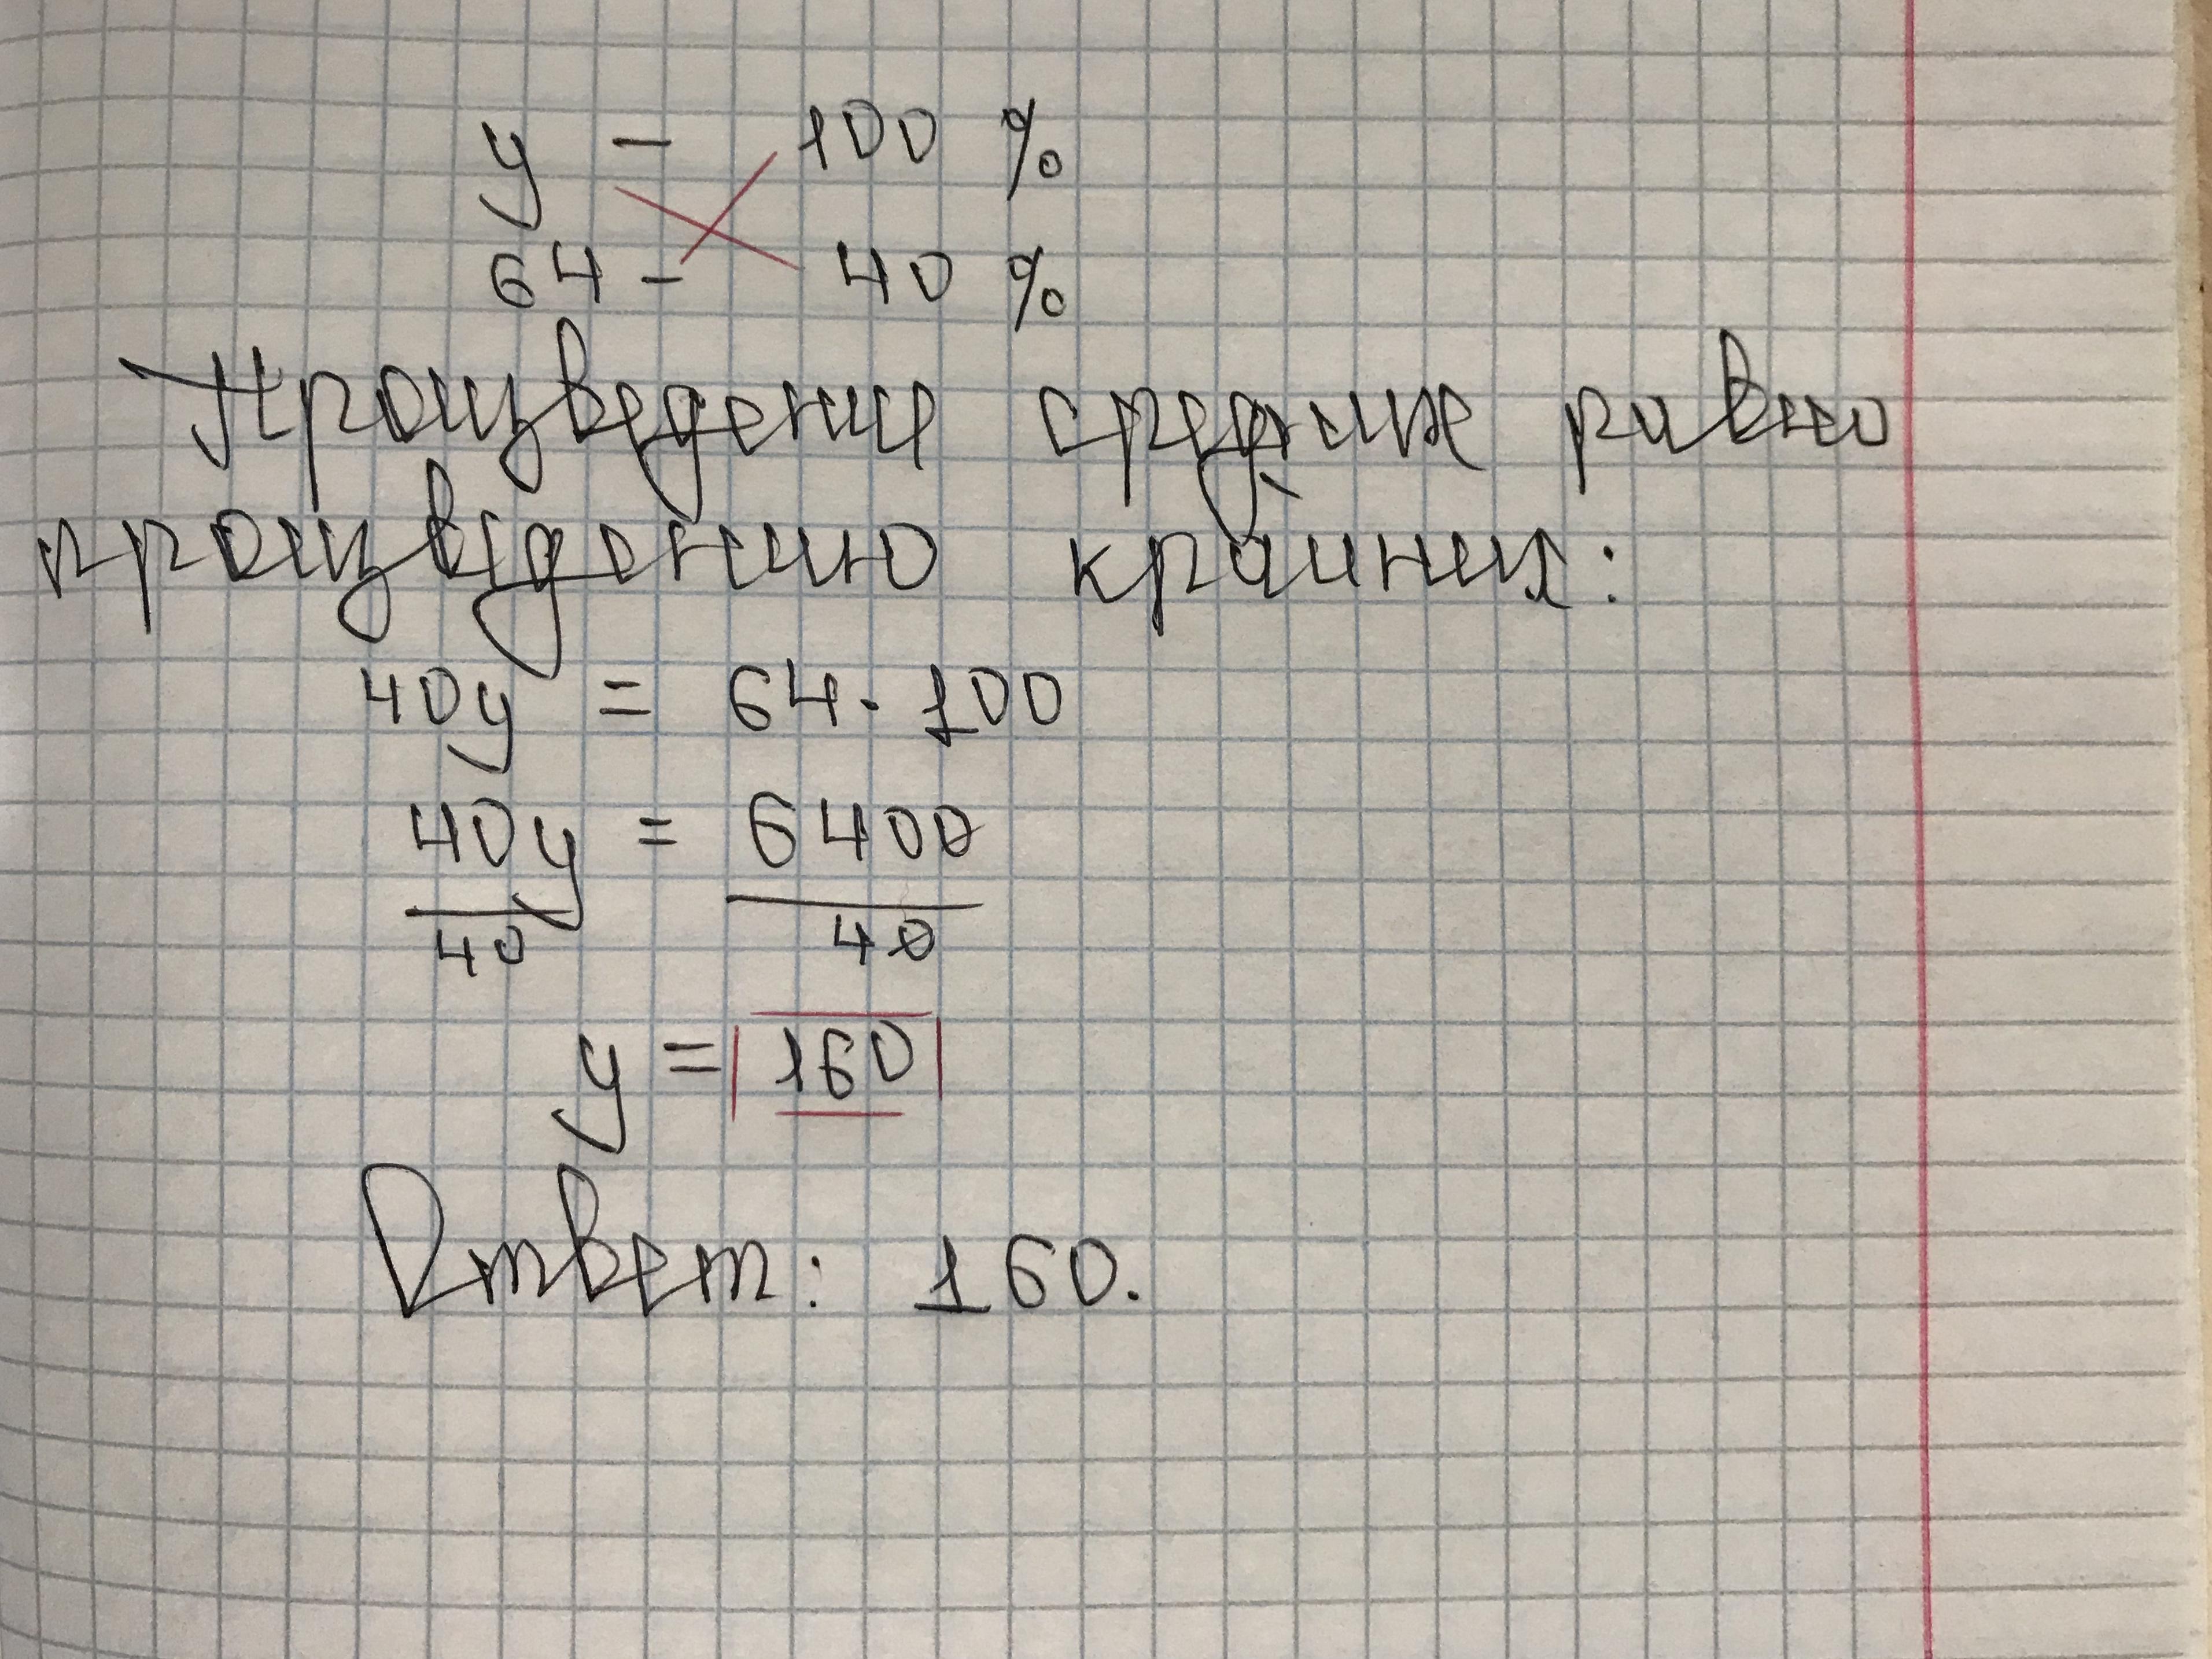 у - 100 %
64 - 40 %
Произведение средних равно
произведению крайних:
40у = 64 · 100
40у = 6400
40 40
у = 160
Ответ: 160.